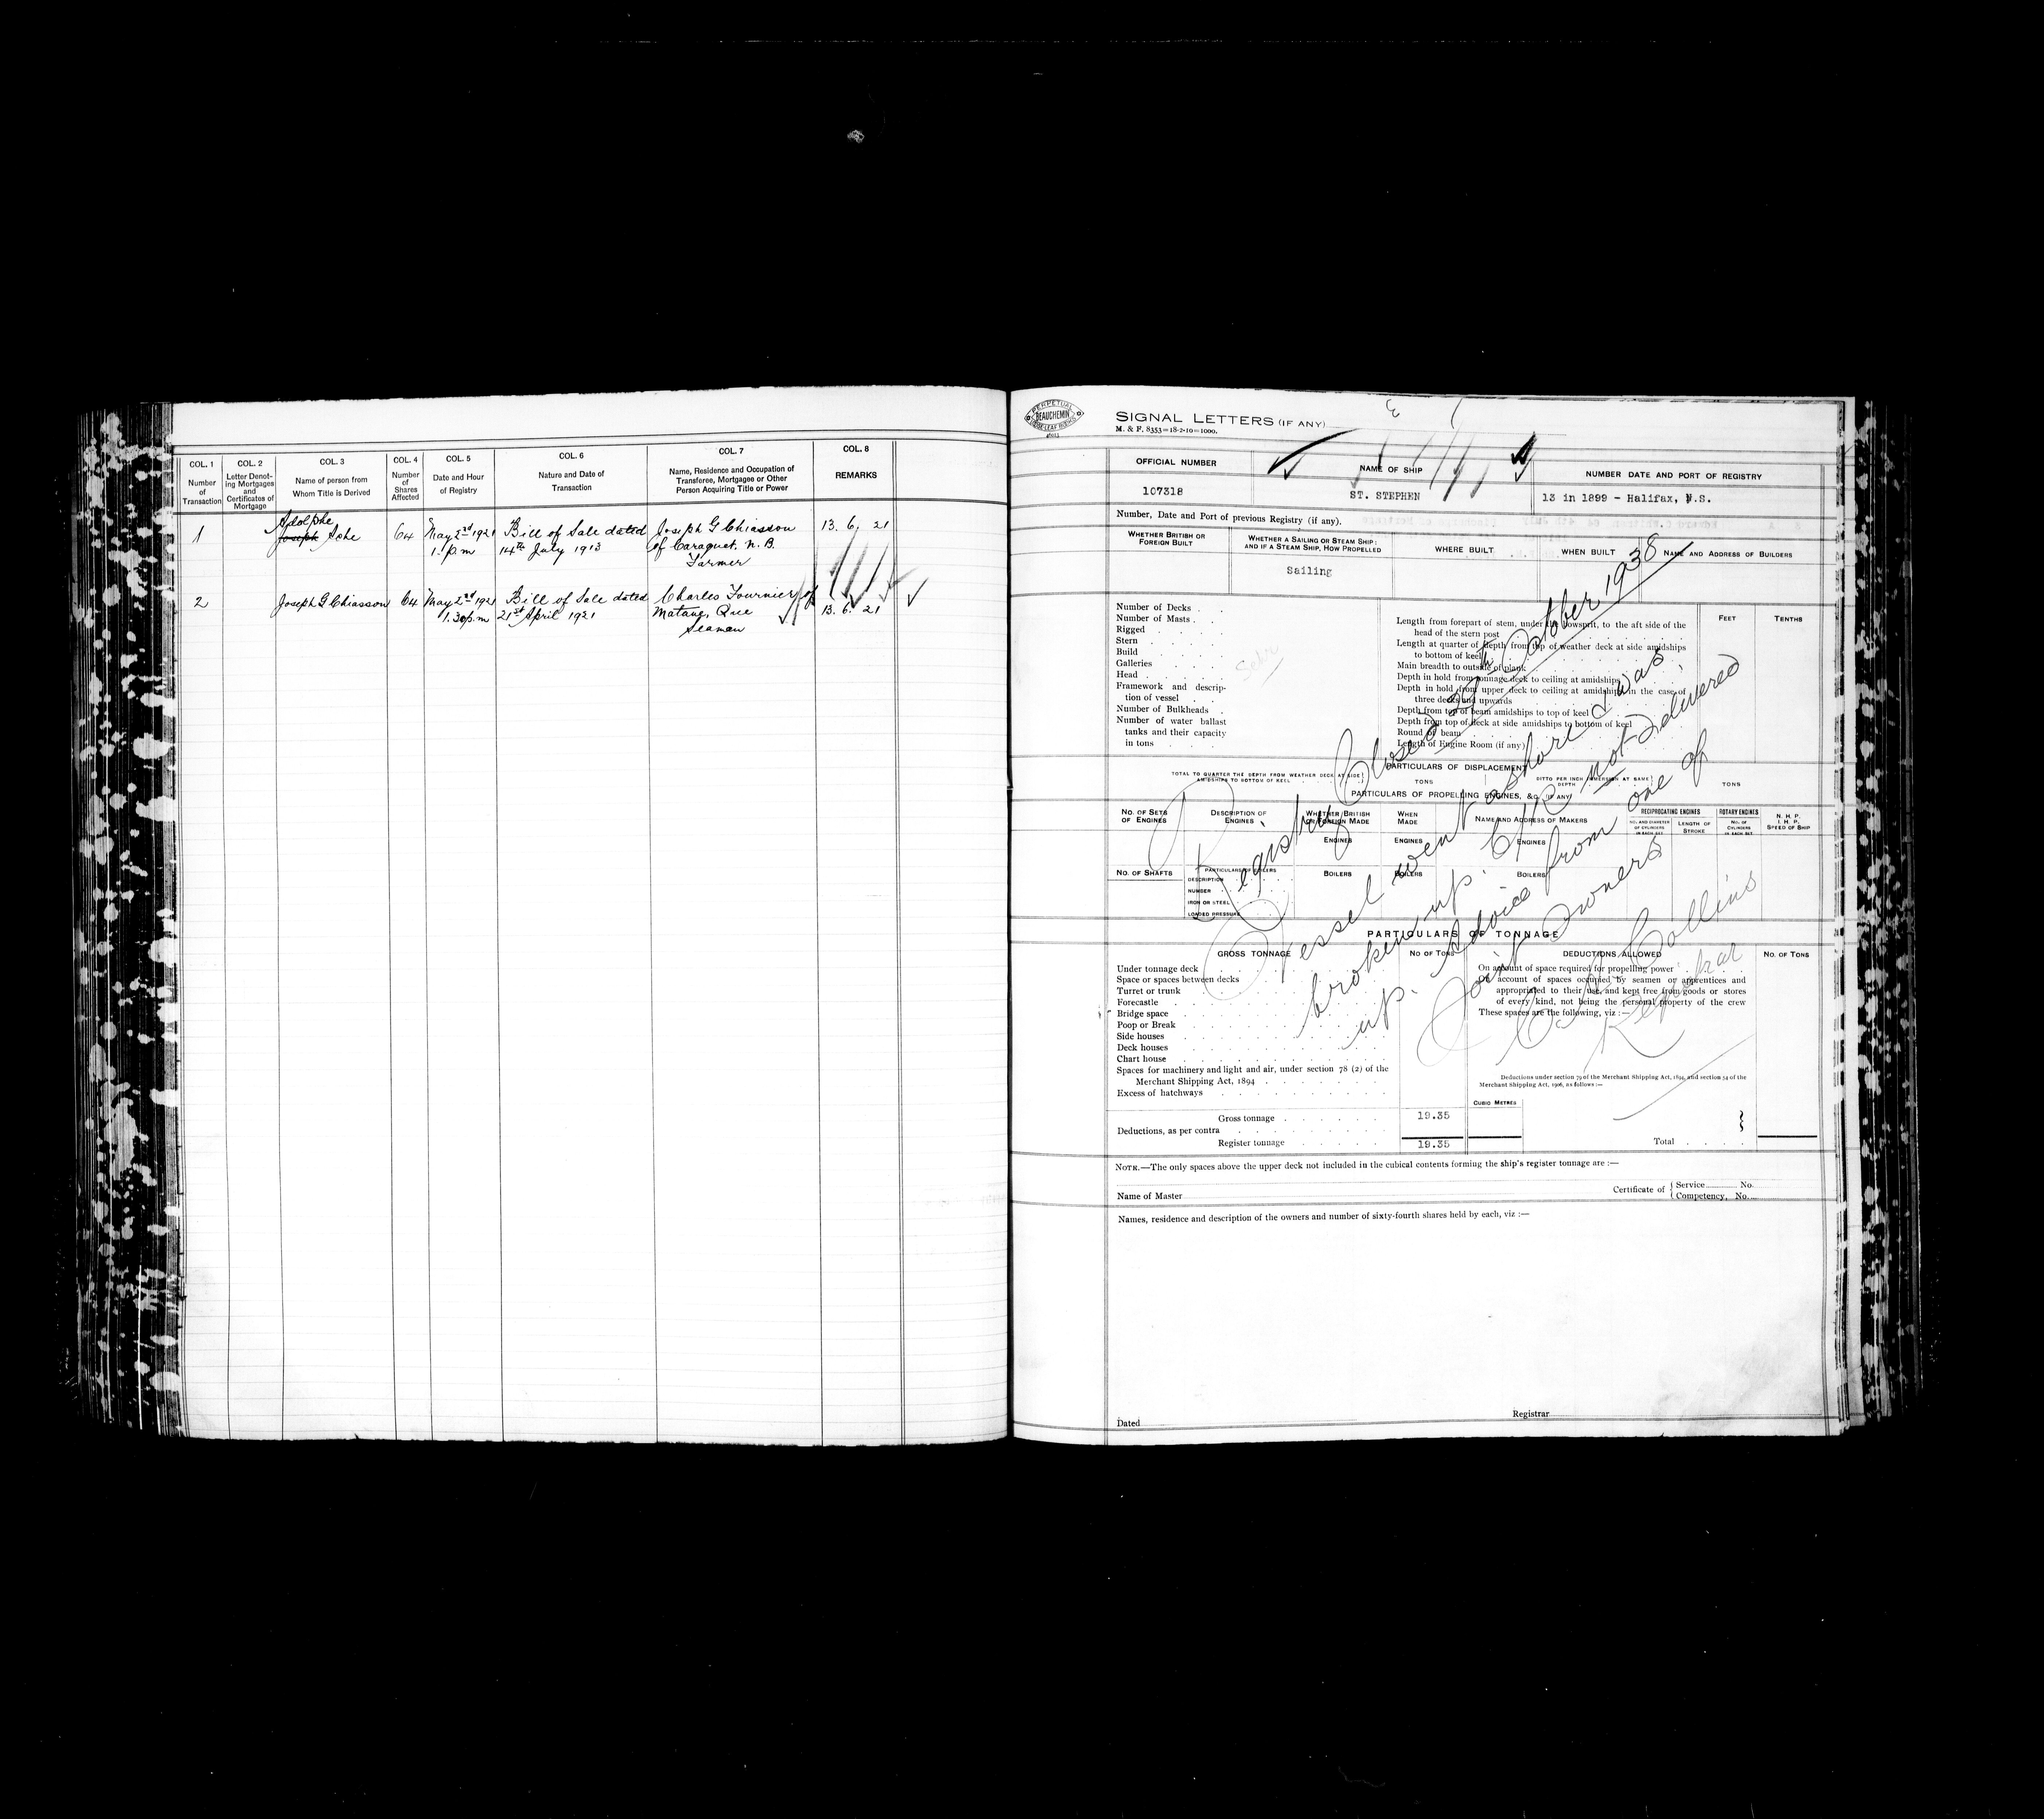 COL. 1 COL. 2 COL. 3 COL. 4 COL. 5 COL. 6 COL. 7 COL. 8
Number of Transaction
Letter Denoting Mortgages and Certificates of Mortgage
Name of person from Whom Title is Derived
Number of Shares Affected
Date and Hour of Registry
Nature and Date of Transaction
Name, Residence and Occupation of Transferee, Mortgagee or Other Person Acquiring Title or Power
REMARKS
Adolphe
1 Joseph Ache 64 May 2nd 1921 Bill of Sale dated Joseph G Chiasson 13. 6. 21
1. p.m 14th July 1913 of Caraquet. N. B.
Farmer
2 Joseph G Chiasson 64 May 2nd 1921 Bill of Sale dated Charles Fournier of
1.30 p.m 21st April 1921 Matane, Que 13. 6. 21
Seaman
PERPETUAL
BEAUCHEMIN
LOOSE LEAF BOOKS
SIGNAL LETTERS (IF ANY)
M. & F. 8353=18-2-10=1000.
OFFICIAL NUMBER NAME OF SHIP NUMBER DATE AND PORT OF REGISTRY
107318 ST. STEPHEN 13 in 1899 - Halifax, N.S.
Number, Date and Port of previous Registry (if any).
WHETHER BRITISH OR FOREIGN BUILT
WHETHER A SAILING OR STEAM SHIP; AND IF A STEAM SHIP, HOW PROPELLED
WHERE BUILT WHEN BUILT NAME AND ADDRESS OF BUILDERS
Sailing
Number of Decks
Number of Masts
Rigged
Stern
Build
Galleries
Head
Framework and description of vessel
Number of Bulkheads
Number of water ballast tanks and their capacity in tons
Schr
FEET TENTHS
Length from forepart of stem, under the bowsprit, to the aft side of the
head of the stern post
Length at quarter of depth from top of weather deck at side amidships
to bottom of keel
Main breadth to outside of plank
Depth in hold from tonnage deck to ceiling at amidships
Depth in hold from upper deck to ceiling at amidships, in the case of
three decks and upwards
Depth from top of beam amidships to top of keel
Depth from top of deck at side amidships to bottom of keel
Round of beam
Length of Engine Room (if any)
PARTICULARS OF DISPLACEMENT
TOTAL TO QUARTER THE DEPTH FROM WEATHER DECK AT SIDE AMIDSHIPS TO BOTTOM OF KEEL TONS DITTO PER INCH IMMERSION AT SAME DEPTH TONS
PARTICULARS OF PROPELLING ENGINES, &C. (IF ANY)
NO. OF SETS OF ENGINES
DESCRIPTION OF ENGINES
WHETHER BRITISH OR FOREIGN MADE
WHEN MADE
NAME AND ADDRESS OF MAKERS
RECIPROCATING ENGINES
NO. AND DIAMETER OF CYLINDERS IN EACH SET
LENGTH OF STROKE
ROTARY ENGINES
NO. OF CYLINDERS IN EACH SET
N. H. P.
I. H. P.
SPEED OF SHIP
ENGINES ENGINES ENGINES
NO. OF SHAFTS
PARTICULARS OF BOILERS
DESCRIPTION
NUMBER
IRON OR STEEL
LOADED PRESSURE
BOILERS BOILERS BOILERS
Registry Closed 29th October 1938
Vessel went ashore & was
broken up. C/R not delivered
up. Advice from one of
Joint Owners
Collins
Registrar
PARTICULARS OF TONNAGE
GROSS TONNAGE NO OF TONS DEDUCTIONS ALLOWED NO. OF TONS
Under tonnage deck
Space or spaces between decks
Turret or trunk
Forecastle
Bridge space
Poop or Break
Side houses
Deck houses
Chart house
Spaces for machinery and light and air, under section 78 (2) of the
Merchant Shipping Act, 1894
Excess of hatchways
On account of space required for propelling power
On account of spaces occupied by seamen or apprentices and
appropriated to their use, and kept free from goods or stores
of every kind, not being the personal property of the crew
These spaces are the following, viz :—
Deductions under section 79 of the Merchant Shipping Act, 1894, and section 54 of the
Merchant Shipping Act, 1906, as follows :—
CUBIC METRES
Gross tonnage 19.35
Deductions, as per contra
Register tonnage 19.35 Total
NOTE.—The only spaces above the upper deck not included in the cubical contents forming the ship's register tonnage are :—
Name of Master Certificate of { Service No.
Competency, No.
Names, residence and description of the owners and number of sixty-fourth shares held by each, viz :—
Dated Registrar